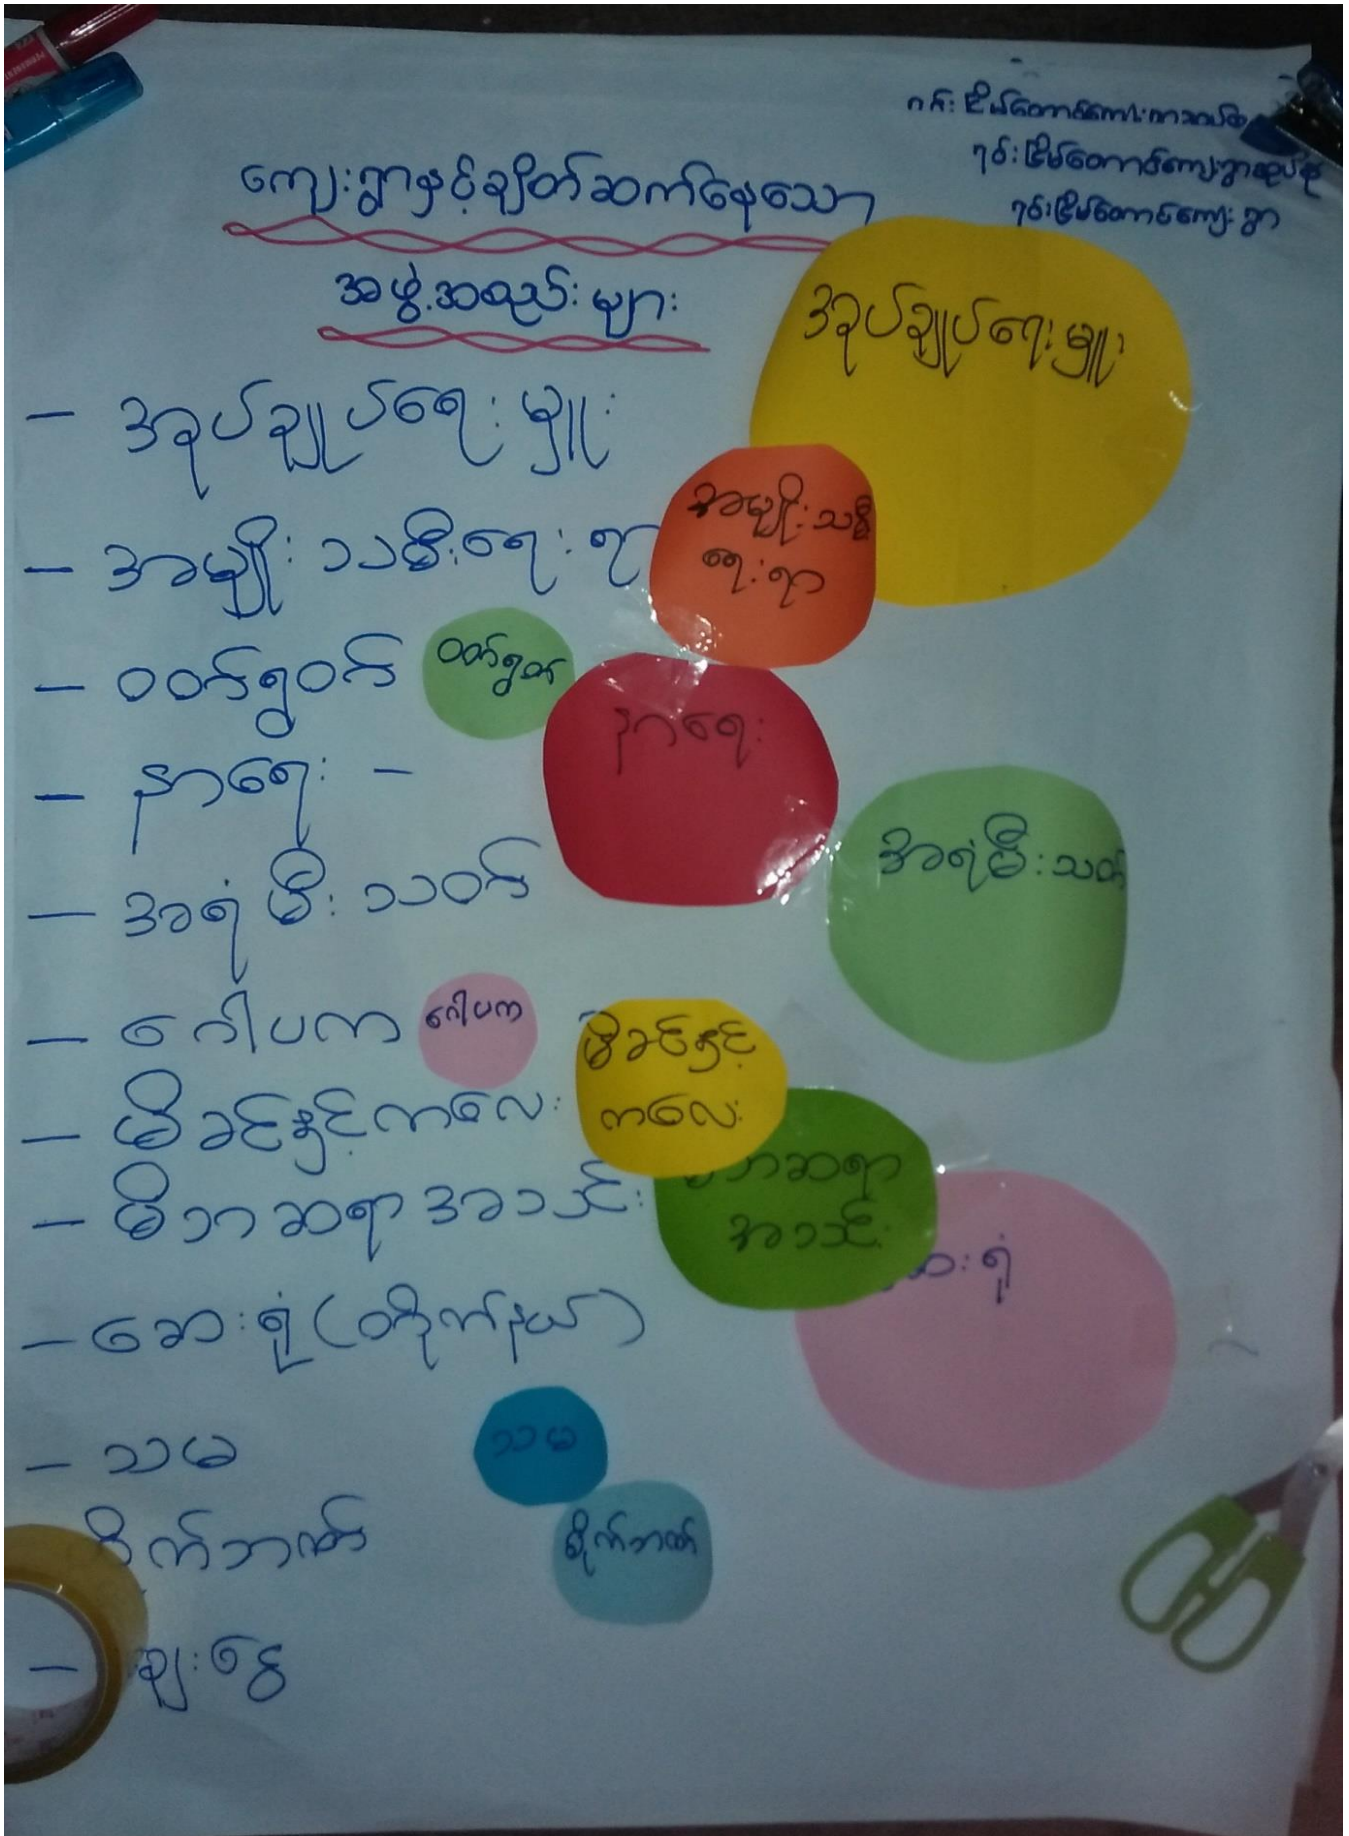 ကျေးရွာနှင့်ချိတ်ဆက်နေသော
အဖွဲ့အစည်းများ
- အုပ်ချုပ်ရေးမှူး
- အမျိုးသမီးရေးရာ
- ဝတ်ရွတ်
- နာရေး -
- အရံမီးသတ်
- ဂေါပက
- မိခင်နှင့်ကလေး
- မိဘဆရာအသင်း
- ဆေးရုံ (တိုက်နယ်)
- သမ
စိုက်ဘဏ်
- ချေးငွေ
အုပ်ချုပ်ရေးမှူး
အမျိုးသမီး
ရေးရာ
ဝတ်ရွတ်
နာရေး
အရံမီးသတ်
ဂေါပက
မိခင်နှင့်
ကလေး
မိဘဆရာ
အသင်း
ဆေးရုံ
သမ
စိုက်ဘဏ်